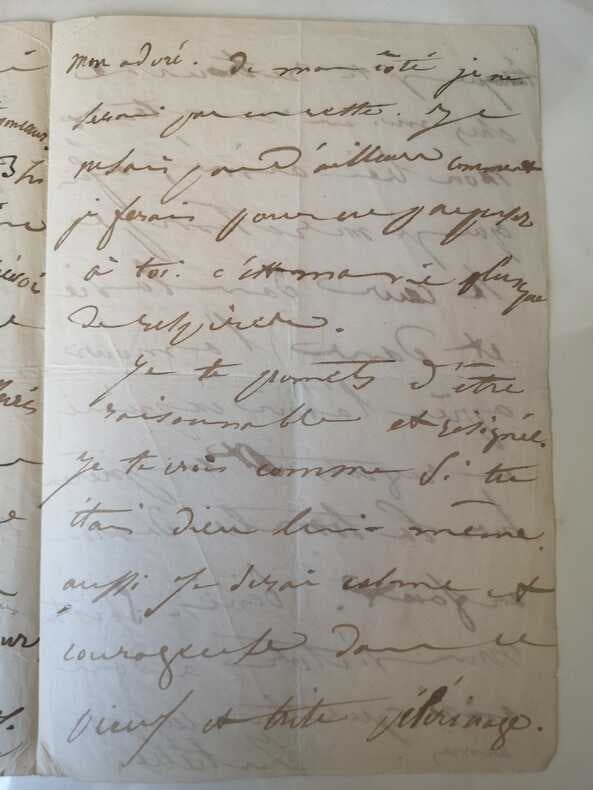 mon adoré. De mon côté je ne
serai pas en reste. Je
ne sais pas d'ailleurs comment
je ferais pour ne pas penser
à toi. c'est ma vie plus que
de respirer.
Je te promets d'être
raisonnable et résignée.
Je te crois comme si tu
étais dieu lui-même.
aussi je serai calme et
courageuse dans ce
pieux et triste pélérinage.